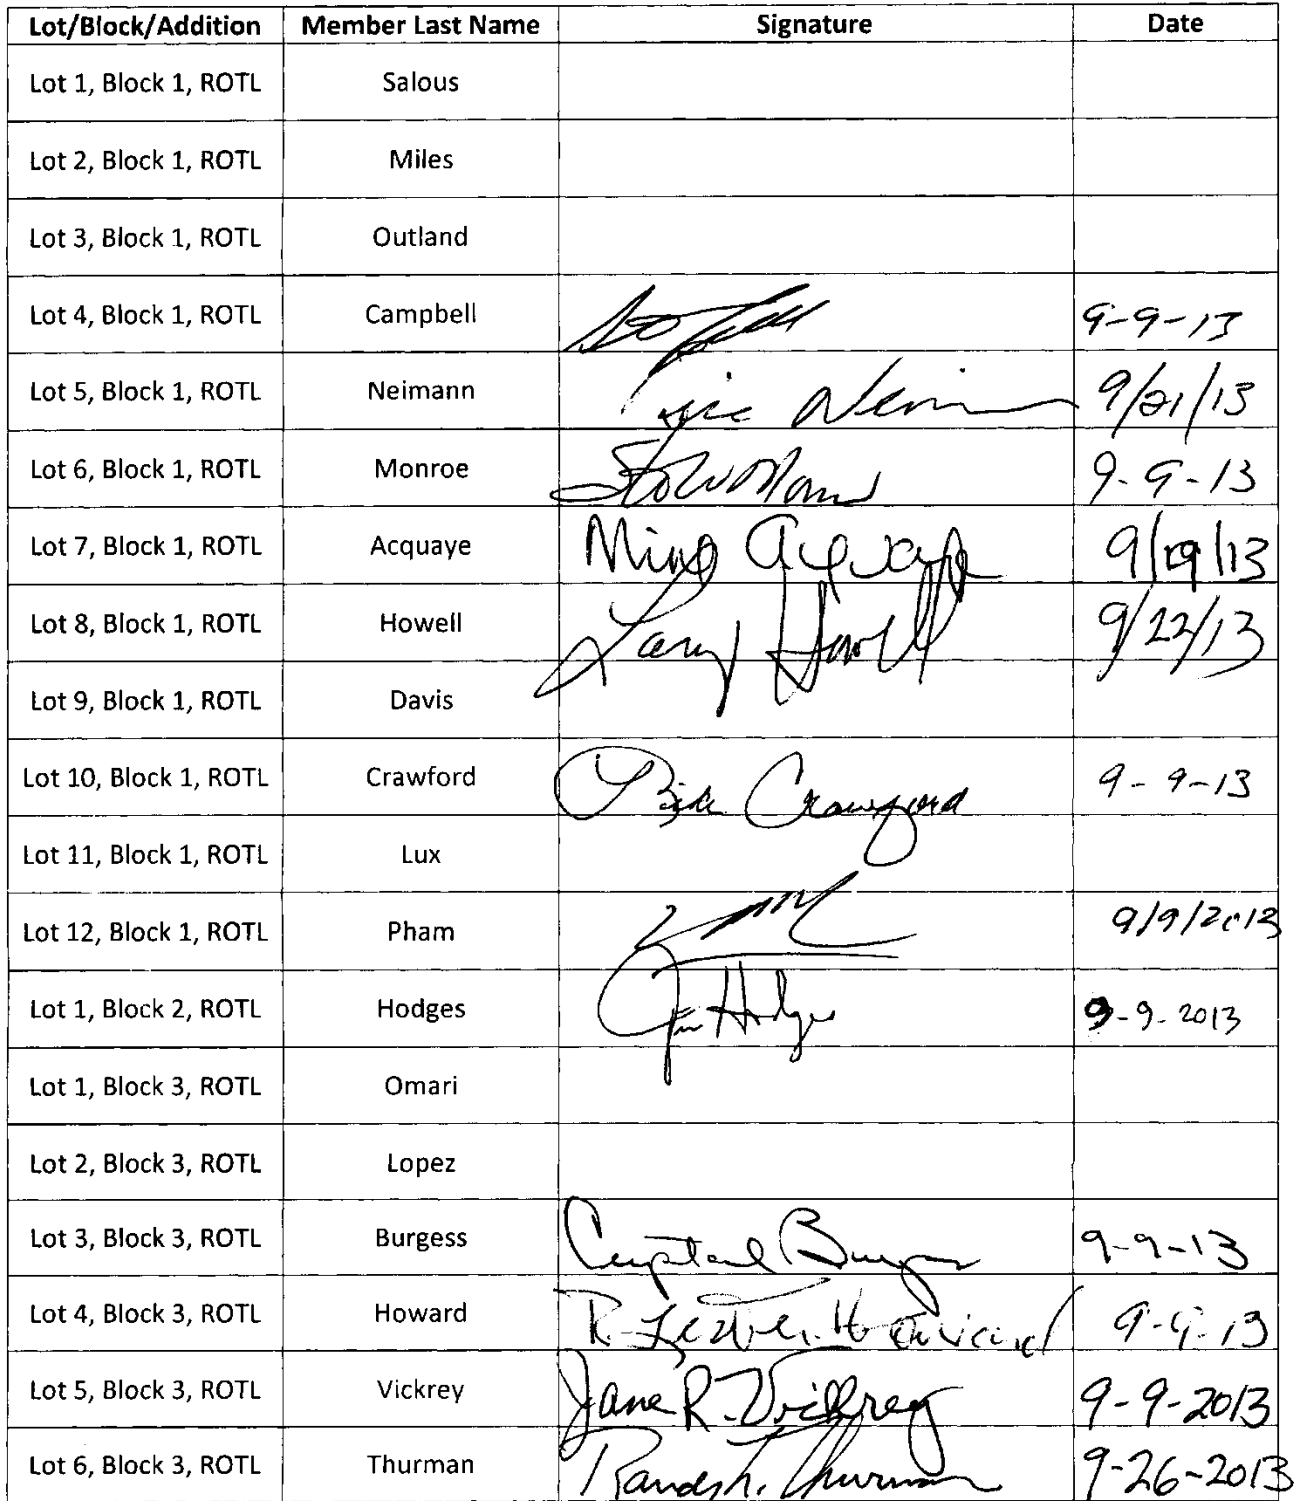 Lot/Block/Addition Member Last Name Signature Date
Lot 1, Block 1, ROTL Salous
Lot 2, Block 1, ROTL Miles
Lot 3, Block 1, ROTL Outland
Lot 4, Block 1, ROTL Campbell 9-9-13
Lot 5, Block 1, ROTL Neimann 9/21/13
Lot 6, Block 1, ROTL Monroe 9-9-13
Lot 7, Block 1, ROTL Acquaye 9/19/13
Lot 8, Block 1, ROTL Howell Larry Howell 9/22/13
Lot 9, Block 1, ROTL Davis
Lot 10, Block 1, ROTL Crawford Crawford 9-9-13
Lot 11, Block 1, ROTL Lux
Lot 12, Block 1, ROTL Pham 9/9/2013
Lot 1, Block 2, ROTL Hodges Hodges 9-9-2013
Lot 1, Block 3, ROTL Omari
Lot 2, Block 3, ROTL Lopez
Lot 3, Block 3, ROTL Burgess Crystal Burgess 9-9-13
Lot 4, Block 3, ROTL Howard R. Lester Howard 9-9-13
Lot 5, Block 3, ROTL Vickrey Jane R. Vickrey 9-9-2013
Lot 6, Block 3, ROTL Thurman Thurman 9-26-2013